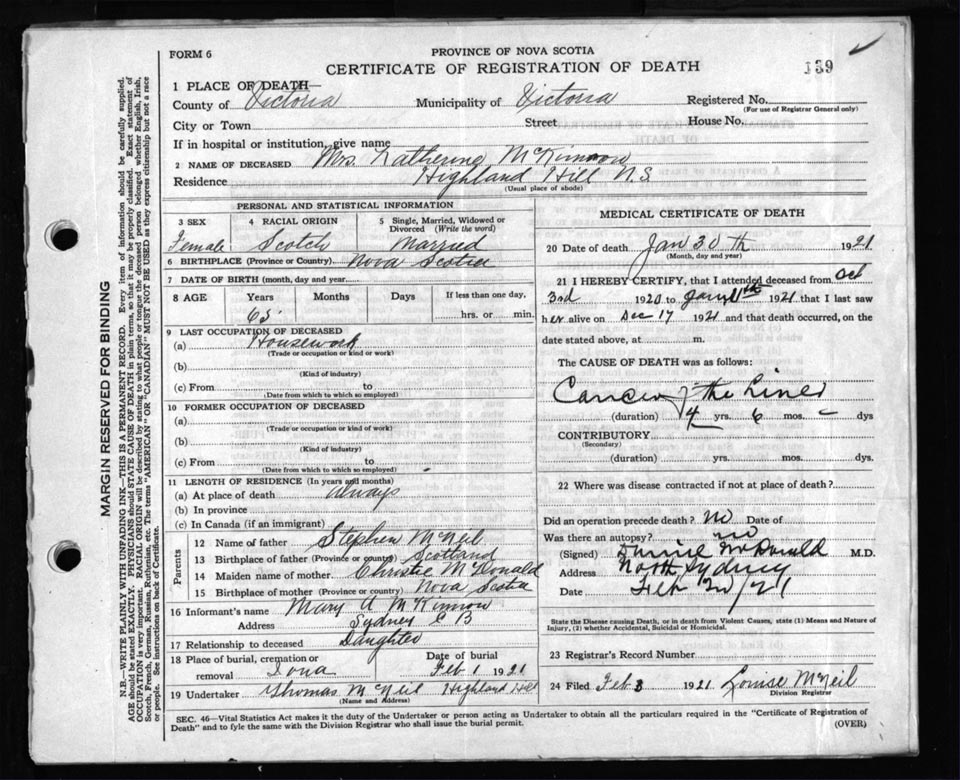 FORM 6
PROVINCE OF NOVA SCOTIA
CERTIFICATE OF REGISTRATION OF DEATH
139
1 PLACE OF DEATH—
County of Victoria Municipality of Victoria Registered No.
(For use of Registrar General only)
City or Town Street House No.
If in hospital or institution, give name
2 NAME OF DECEASED Mrs. Katherine McKinnon
Residence Highland Hill N.S.
(Usual place of abode)
PERSONAL AND STATISTICAL INFORMATION
3 SEX 4 RACIAL ORIGIN 5 Single, Married, Widowed or Divorced (Write the word)
Female Scotch Married
6 BIRTHPLACE (Province or Country) Nova Scotia
7 DATE OF BIRTH (month, day and year)
8 AGE Years Months Days If less than one day,
65 hrs. or min.
9 LAST OCCUPATION OF DECEASED
(a) Housework
(Trade or occupation or kind or work)
(b)
(Kind of industry)
(c) From to
(Date from which to which so employed)
10 FORMER OCCUPATION OF DECEASED
(a)
(Trade or occupation or kind of work)
(b)
(Kind of industry)
(c) From to
(Date from which to which so employed)
11 LENGTH OF RESIDENCE (In years and months)
(a) At place of death always
(b) In province
(c) In Canada (if an immigrant)
Parents
12 Name of father Stephen McNeil
13 Birthplace of father (Province or country) Scotland
14 Maiden name of mother Christie McDonald
15 Birthplace of mother (Province or country) Nova Scotia
16 Informant's name Mary A McKinnon
Address Sydney C B
17 Relationship to deceased Daughter
18 Place of burial, cremation or removal Iona Date of burial Feb 1 1921
19 Undertaker Thomas McNeil Highland Hill
(Name and Address)
MEDICAL CERTIFICATE OF DEATH
20 Date of death Jan 30th 1921
(Month, day and year)
21 I HEREBY CERTIFY, that I attended deceased from Oct
3rd 1920 to 1921 that I last saw
her alive on Dec 17 1921 and that death occurred, on
date stated above, at m.
The CAUSE OF DEATH was as follows:
Cancer of the Liver
(duration) 4 yrs. 6 mos. – dys
CONTRIBUTORY
(Secondary)
(duration) yrs. mos. dys.
22 Where was disease contracted if not at place of death?
Did an operation precede death? No Date of
Was there an autopsy? no
(Signed) McDonald M.D.
Address North Sydney
Date Feb 2nd/21
State the Disease causing Death, or in death from Violent Causes, state (1) Means and Nature of
Injury, (2) whether Accidental, Suicidal or Homicidal.
23 Registrar's Record Number
24 Filed Feb 3 1921 Louise McNeil
Division Registrar
SEC. 46—Vital Statistics Act makes it the duty of the Undertaker or person acting as Undertaker to obtain all the particulars required in the "Certificate of Registration of
Death" and to fyle the same with the Division Registrar who shall issue the burial permit. (OVER)
MARGIN RESERVED FOR BINDING
N.B.—WRITE PLAINLY WITH UNFADING INK—THIS IS A PERMANENT RECORD. Every item of information should be carefully supplied.
AGE should be stated EXACTLY. PHYSICIANS should STATE CAUSE OF DEATH in plain terms, so that it may be properly classified. Exact statement of
OCCUPATION is very important. RACIAL ORIGIN will be described by stating to what people or tongue the deceased person belonged whether English, Irish,
Scotch, French, German, Russian, Ruthenian, etc. The terms "AMERICAN" OR "CANADIAN" MUST NOT BE USED as they express citizenship but not a race
or people. See instructions on back of Certificate.